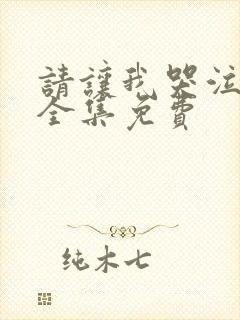 請讓我哭泣
全集免費
純木七